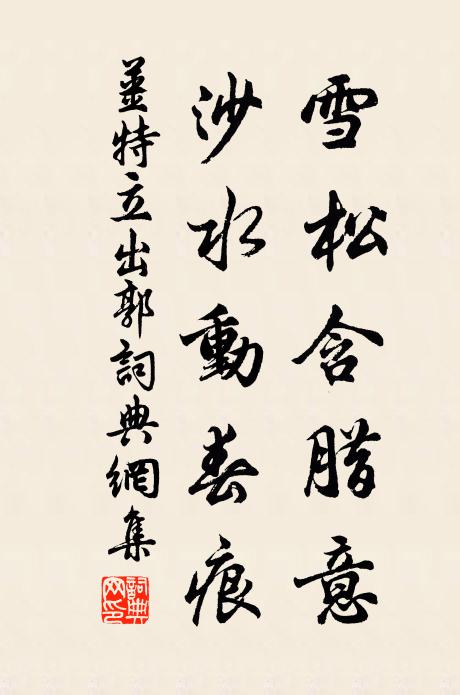 雪松含腊意
沙水動春痕
姜特立出郭詞典網集
詞典网印